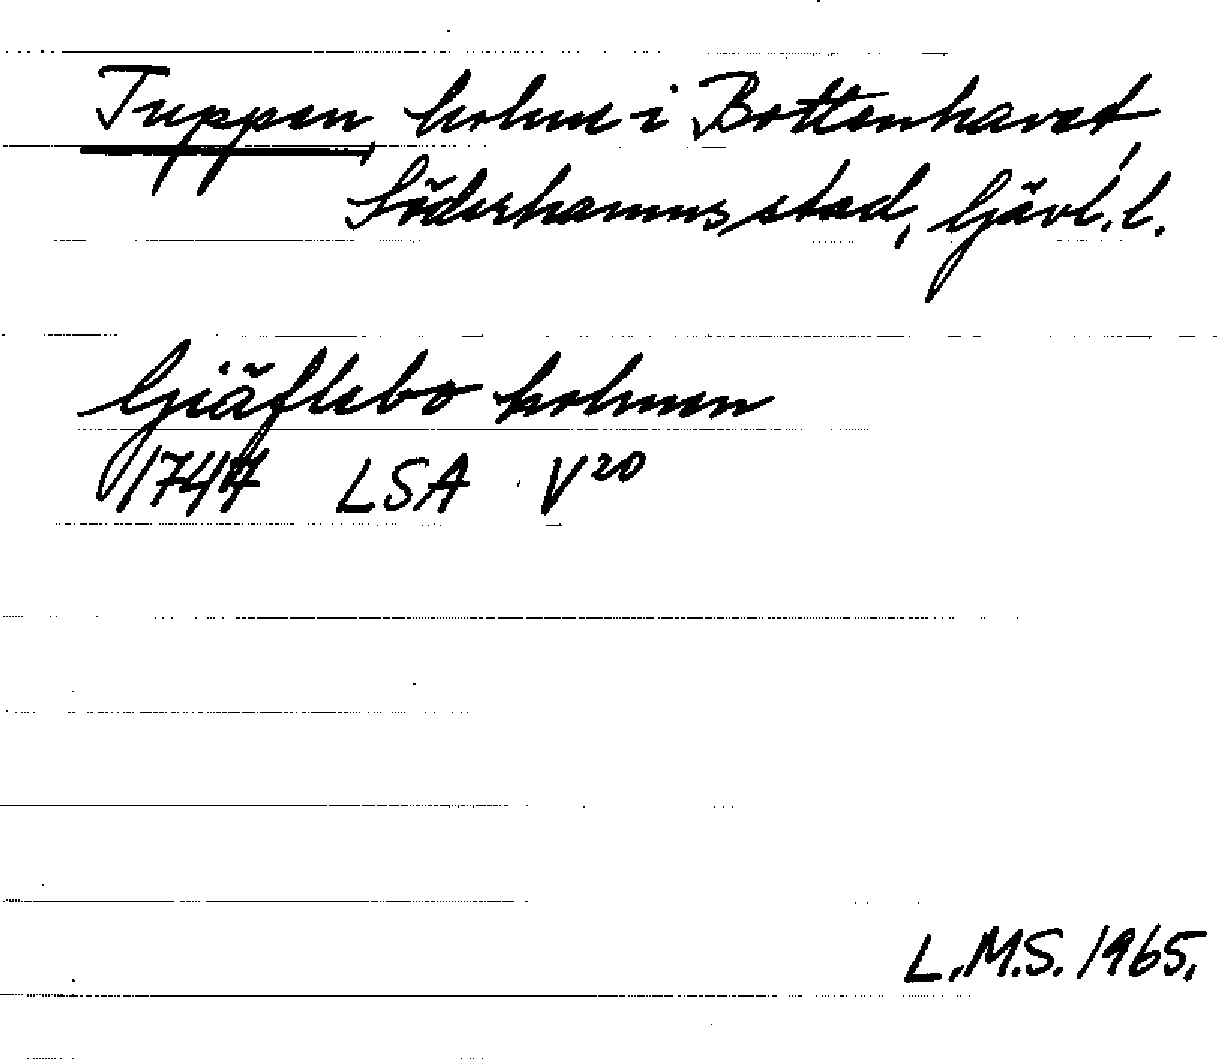 Tuppen holme i Bottenhavet,
Söderhamns stad, Gävl. l.
Giäflebo holmen
1744 LSA V20
L.M.S. 1965.